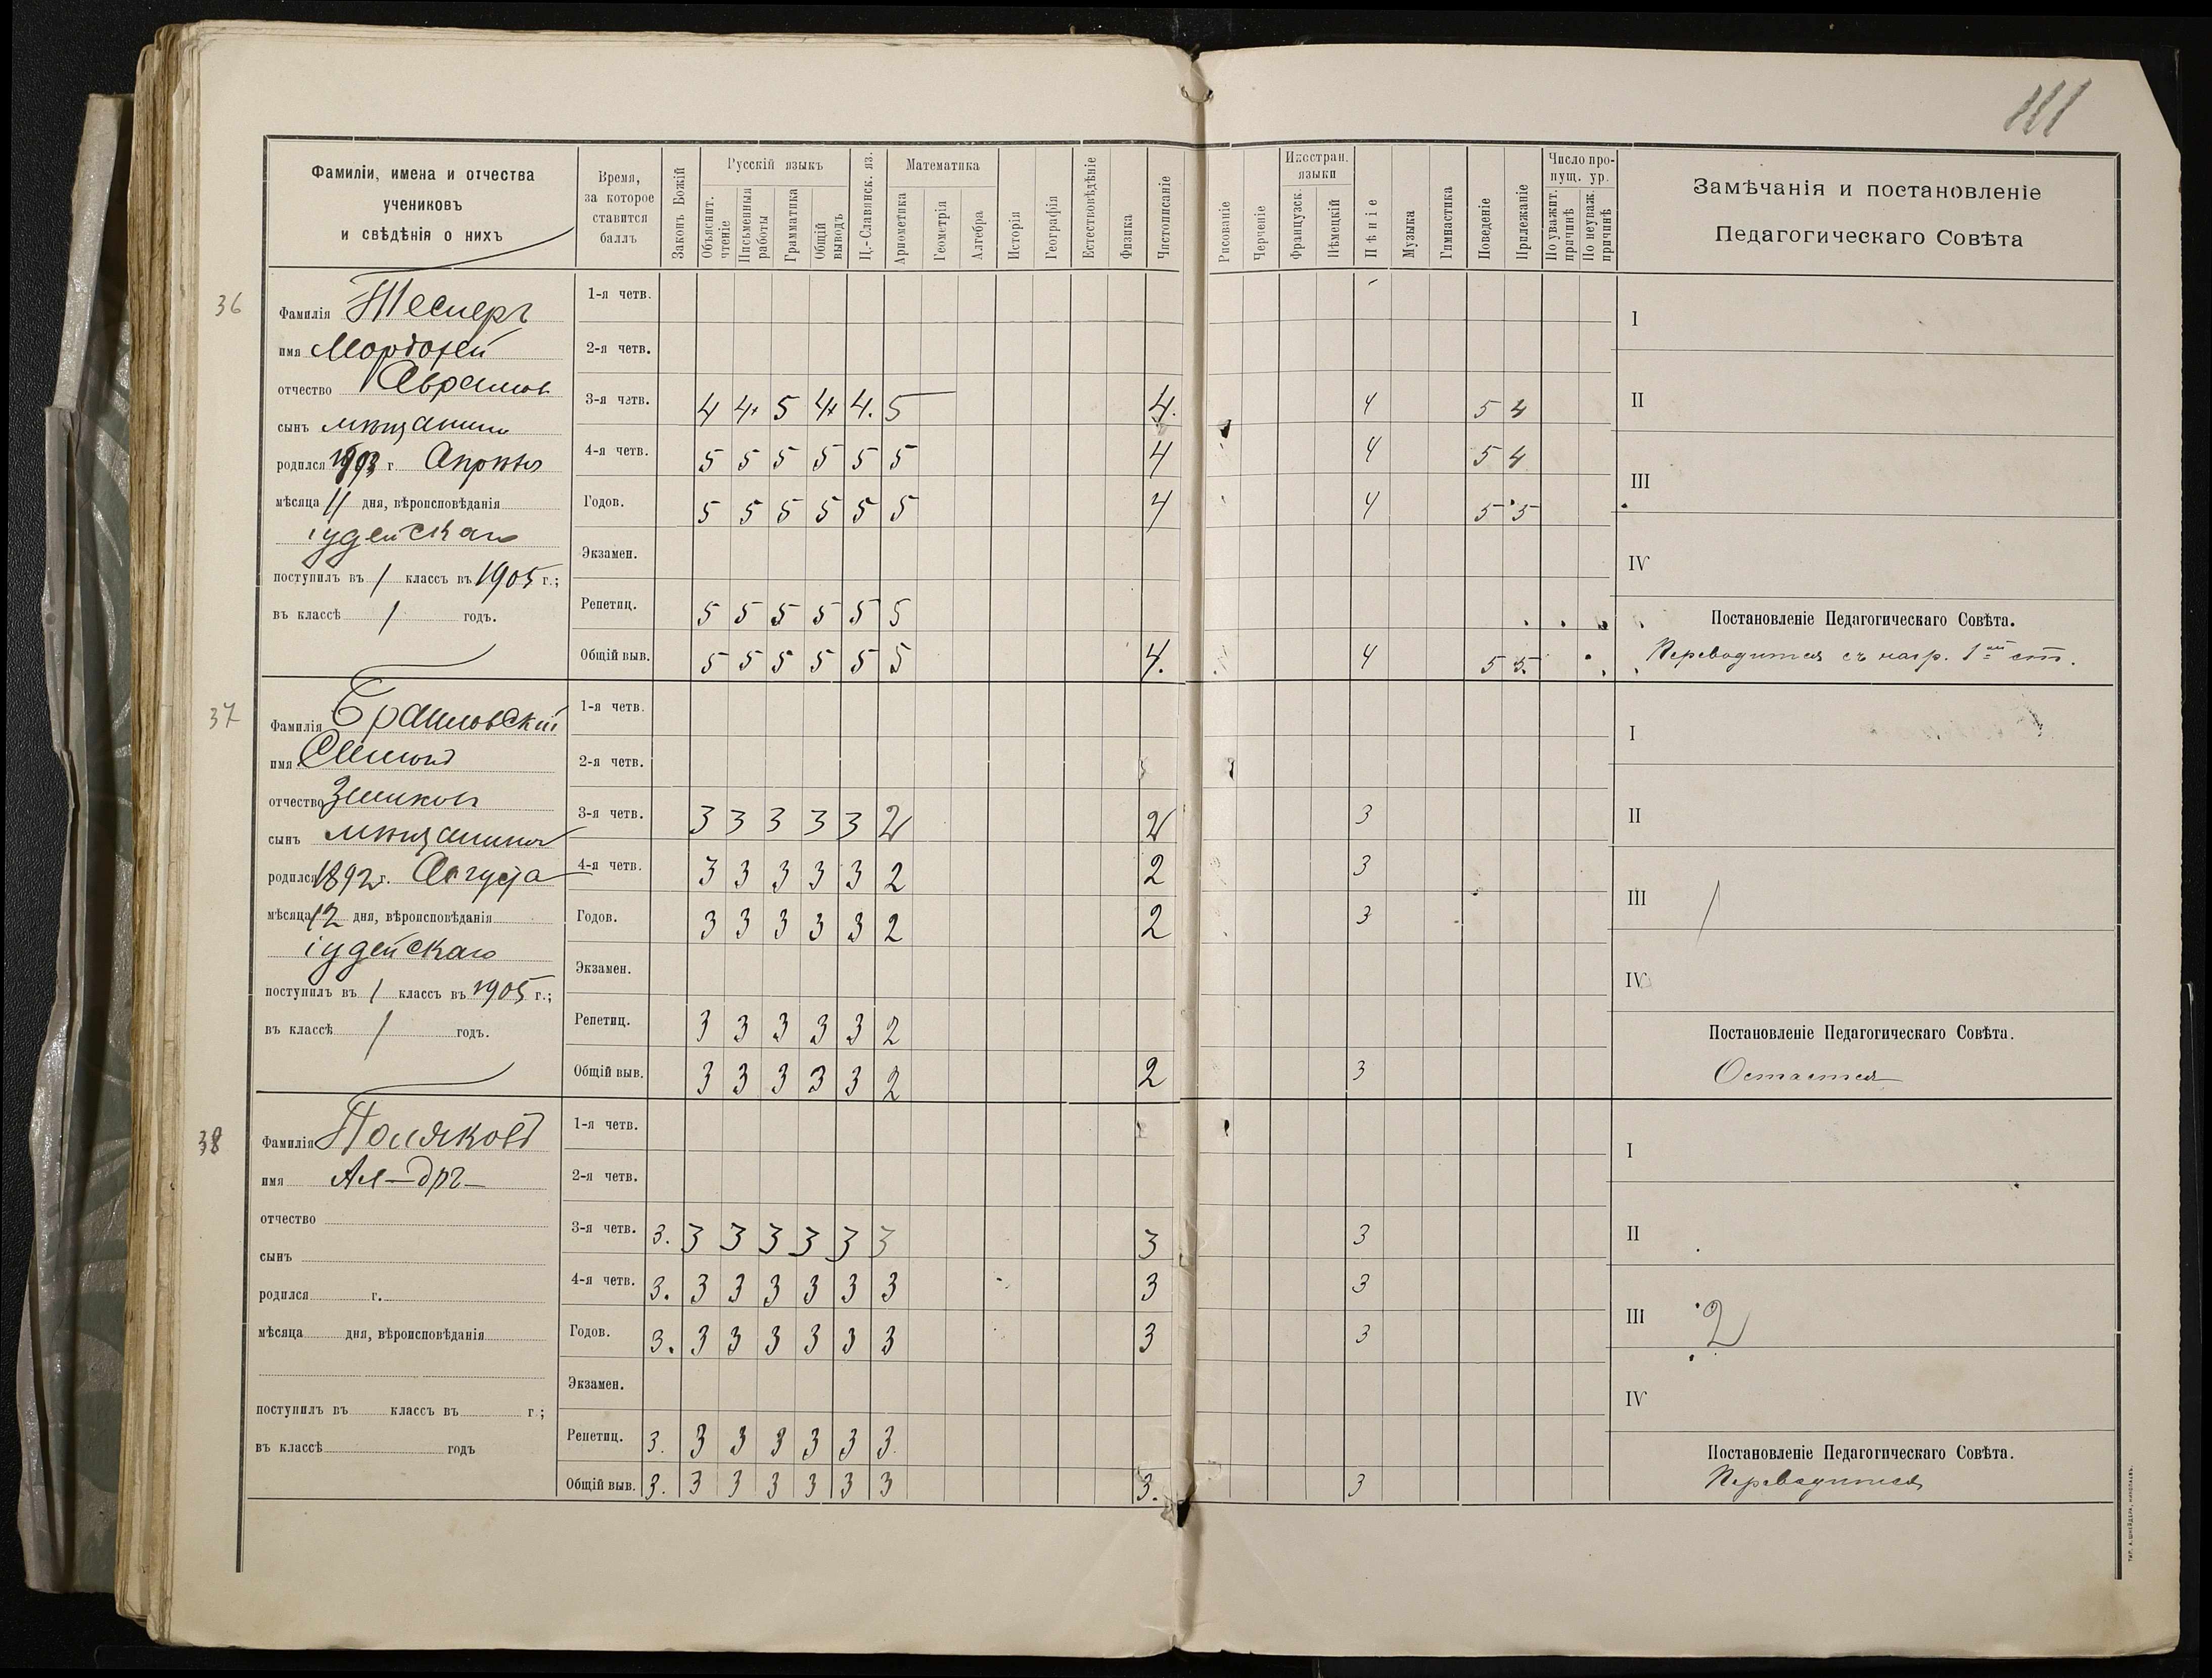 111
Фамиліи, имена и отчества
учениковъ
и свѣдѣнія о нихъ
Время,
за которое
ставится
баллъ
Законъ Божій
Русскій языкъ
Объяснит. чтеніе
Письменныя работы
Грамматика
Общій выводъ
Ц.-Славянск. яз.
Математика
Ариѳметика
Геометрія
Алгебра
Исторія
Географія
Естествовѣдѣніе
Физика
Чистописаніе
Рисованіе
Черченіе
Иностран.
языки
Французск.
Нѣмецкій
Пѣніе
Музыка
Гимнастика
Поведеніе
Прилежаніе
Число про-
пущ. ур.
По уважит. причинѣ
По неуваж. причинѣ
Замѣчанія и постановленіе
Педагогическаго Совѣта
36
Фамилія Теслеръ
имя Мордохей
отчество Абрамов
сынъ мѣщанина
родился 1893 г. Апрѣля
мѣсяца 11 дня, вѣроисповѣданія
іудейскаго
поступилъ въ 1 классъ въ 1905 г.;
въ классѣ 1 годъ.
1-я четв.
2-я четв.
3-я четв. 4 4+ 5 4+ 4. 5 4. 4 5 4
4-я четв. 5 5 5 5 5 5 4 4 5 4
Годов. 5 5 5 5 5 5 4 4 5 5
Экзамен.
Репетиц. 5 5 5 5 5 5
Общій выв. 5 5 5 5 5 5 4. 4 5 5.
I
II
III
IV
Постановленіе Педагогическаго Совѣта.
Переводится съ нагр. 1ой ст.
37
Фамилія Браиловскій
имя
отчество
сынъ мѣщанина
родился 1892 г. Августа
мѣсяца 12 дня, вѣроисповѣданія
іудейскаго
поступилъ въ 1 классъ въ 1905 г.;
въ классѣ 1 годъ.
1-я четв.
2-я четв.
3-я четв. 3 3 3 3 3 2 2 3
4-я четв. 3 3 3 3 3 2 2 3
Годов. 3 3 3 3 3 2 2 3
Экзамен.
Репетиц. 3 3 3 3 3 2
Общій выв. 3 3 3 3 3 2 2 3
I
II
III /
IV
Постановленіе Педагогическаго Совѣта.
Остается
38
Фамилія Поляковъ
имя Ал-дръ
отчество
сынъ
родился г.
мѣсяца дня, вѣроисповѣданія
поступилъ въ классъ въ г.;
въ классѣ годъ
1-я четв.
2-я четв.
3-я четв. 3. 3 3 3 3 3 3 3 3
4-я четв. 3. 3 3 3 3 3 3 3 3
Годов. 3. 3 3 3 3 3 3 3 3
Экзамен.
Репетиц. 3. 3 3 3 3 3 3
Общій выв. 3. 3 3 3 3 3 3 3. 3
I
II
III 2
IV
Постановленіе Педагогическаго Совѣта.
Переводится